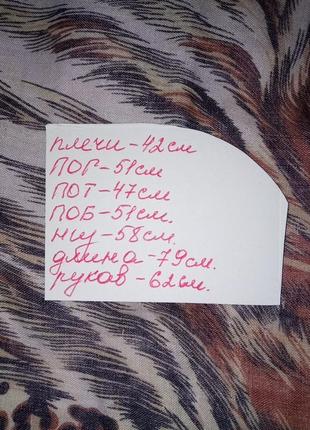 плечи - 42см
ПОГ - 51см
ПОТ - 47см
ПОБ - 51см.
низ - 58см.
длина - 79см.
рукав - 62см.